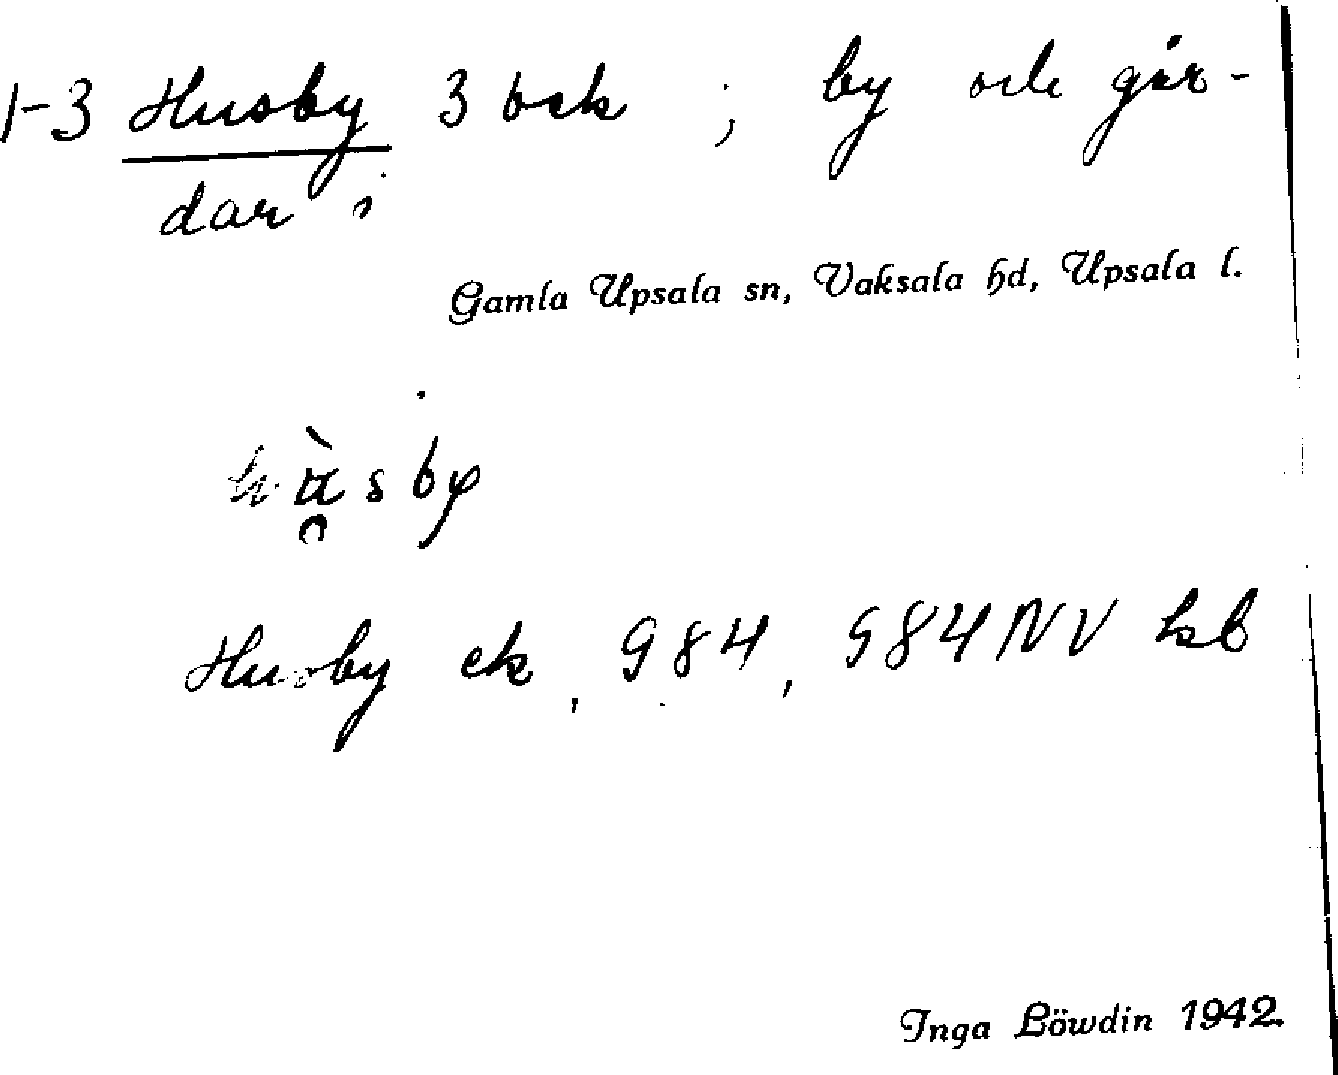 1-3 Husby 3 bek ; by och går-
dar i
Gamla Upsala sn, Vaksala hd, Upsala l.
Husby ek, 984, 984 NV kb
Inga Löwdin 1942.